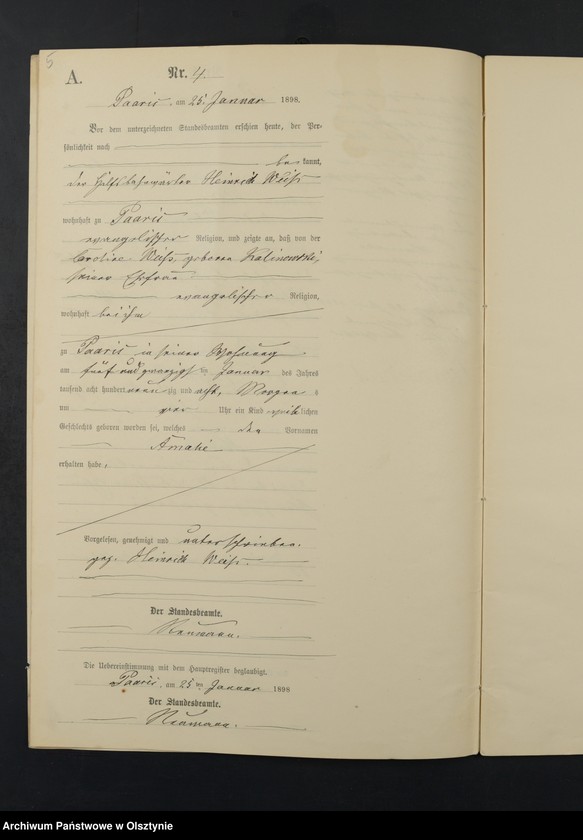 5
A.
Nr. 4.
Paaris, am 25. Januar 1898.
Vor dem unterzeichneten Standesbeamten erschien heute, der Per-
sönlichkeit nach
be kannt,
der Hilfsbahnwärter Heinrich Weiß
wohnhaft zu Paaris
evangelischer Religion, und zeigte an, daß von der
Caroline Weiß, geboren Kalinowski,
seiner Ehefrau
evangelischer Religion,
wohnhaft bei ihm
zu Paaris in seiner Wohnung
am fünf und zwanzigsten Januar des Jahres
tausend acht hundert neun zig und acht, Morgen s
um vier Uhr ein Kind weib lichen
Geschlechts geboren worden sei, welches den Vornamen
Amalie
erhalten habe,
Vorgelesen, genehmigt und unterschrieben.
gez. Heinrich Weiß.
Der Standesbeamte.
Neumann.
Die Uebereinstimmung mit dem Hauptregister beglaubigt.
Paaris, am 25ten Januar 1898
Der Standesbeamte.
Neumann.
Archiwum Państwowe w Olsztynie